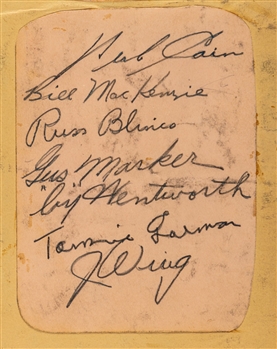 Herb Cain
Bill MacKenzie
Russ Blinco
Gus Marker
"Cy" Wentworth
Tommie Gorman
J Wing